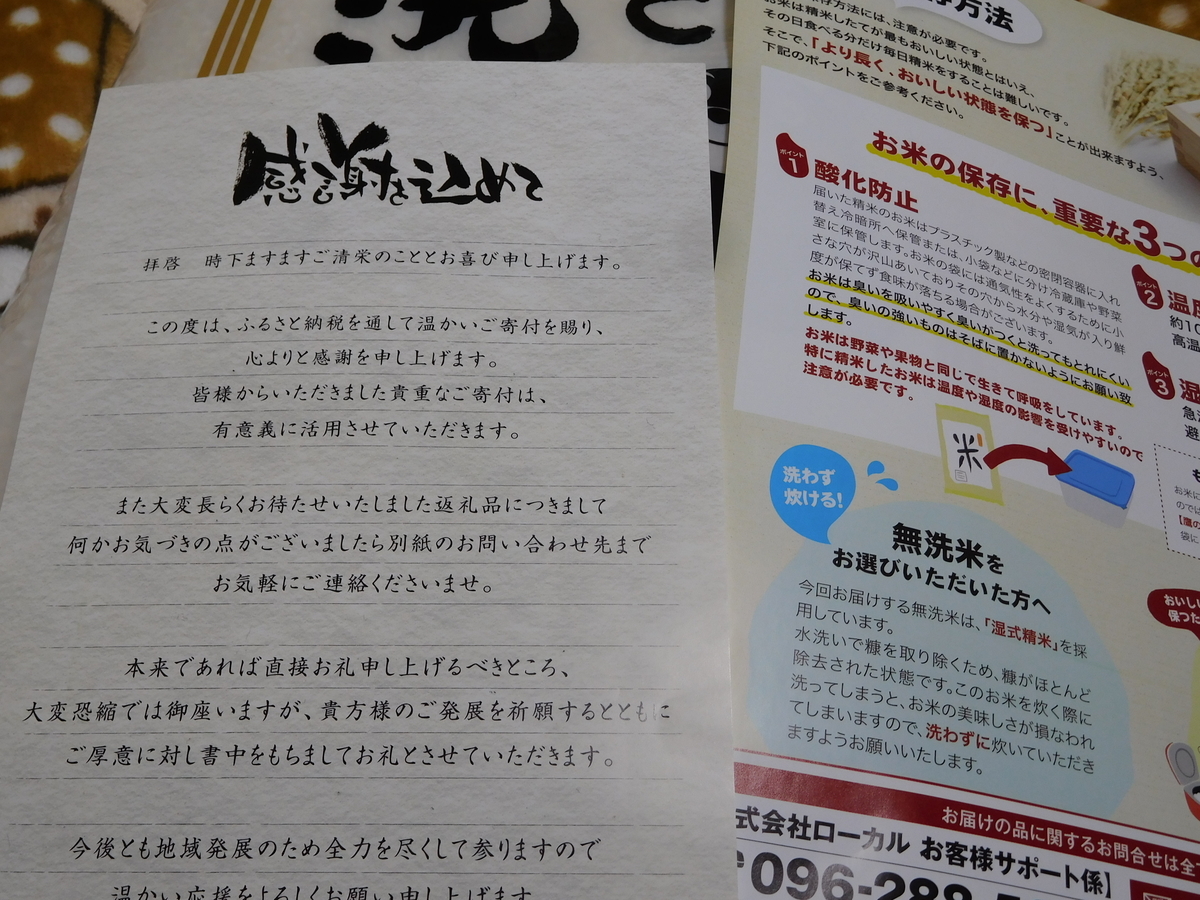 洗
感謝を込めて
拝啓　時下ますますご清栄のこととお喜び申し上げます。
この度は、ふるさと納税を通して温かいご寄付を賜り、
心よりと感謝を申し上げます。
皆様からいただきました貴重なご寄付は、
有意義に活用させていただきます。
また大変長らくお待たせいたしました返礼品につきまして
何かお気づきの点がございましたら別紙のお問い合わせ先まで
お気軽にご連絡くださいませ。
本来であれば直接お礼申し上げるべきところ、
大変恐縮では御座いますが、貴方様のご発展を祈願するとともに
ご厚意に対し書中をもちましてお礼とさせていただきます。
今後とも地域発展のため全力を尽くして参りますので
温かい応援をよろしくお願い申し上げます
存方法
存方法には、注意が必要です。
お米は精米したてが最もおいしい状態とはいえ、
その日食べる分だけ毎日精米をすることは難しいです。
そこで、「より長く、おいしい状態を保つ」ことが出来ますよう、
下記のポイントをご参考ください。
お米の保存に、重要な3つの
ポイント
1
酸化防止
届いた精米のお米はプラスチック製などの密閉容器に入れ
替え冷暗所へ保管または、小袋などに分け冷蔵庫や野菜
室に保管します。お米の袋には通気性をよくするために小
さな穴が沢山あいておりその穴から水分や湿気が入り鮮
度が保てず食味が落ちる場合がございます。
お米は臭いを吸いやすく臭いがつくと洗ってもとれにくい
ので、臭いの強いものはそばに置かないようにお願い致
します。
お米は野菜や果物と同じで生きて呼吸をしています。
特に精米したお米は温度や湿度の影響を受けやすいので
注意が必要です。
ポイント
2
温度
約10
高温
ポイント
3
湿
急
避
米
洗わず
炊ける!
無洗米を
お選びいただいた方へ
今回お届けする無洗米は、「湿式精米」を採
用しています。
水洗いで糠を取り除くため、糠がほとんど
除去された状態です。このお米を炊く際に
洗ってしまうと、お米の美味しさが損なわれ
てしまいますので、洗わずに炊いていただき
ますようお願いいたします。
も
お米に
のでは
袋に
おいし
保つた
お届けの品に関するお問合せは全
式会社ローカル お客様サポート係】
096-288